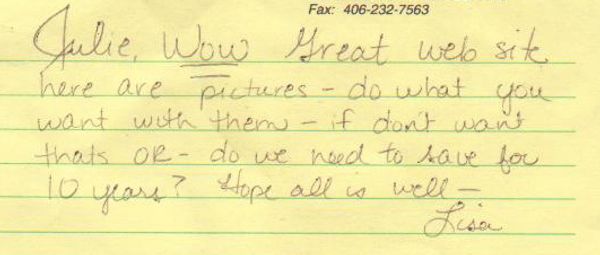 Fax: 406-232-7563
Julie, Wow Great web site
here are pictures - do what you
want with them - if don't want
thats OK - do we need to save for
10 years? Hope all is well -
Lisa